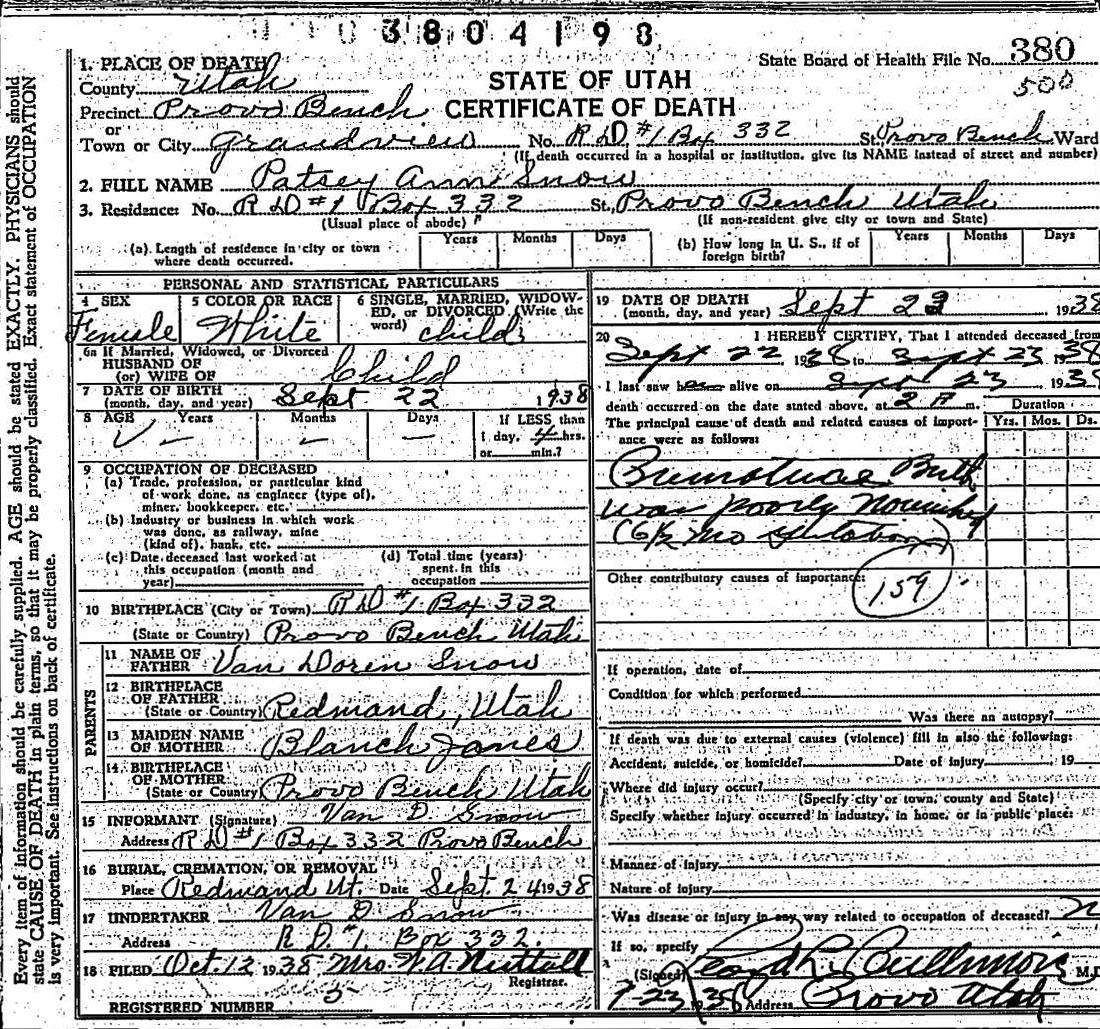 3804198
State Board of Health File No. 380
500
STATE OF UTAH
CERTIFICATE OF DEATH
1. PLACE OF DEATH
County Utah
Precinct Provo Bench
or
Town or City Grandview No. R D #1 Box 332 St. Provo Bench Ward
(If death occurred in a hospital or institution, give its NAME instead of street and number)
2. FULL NAME Patsey Ann Snow
3. Residence: No. R D #1 Box 332 St. Provo Bench Utah
(Usual place of abode) (If non-resident give city or town and State)
(a). Length of residence in city or town where death occurred. Years Months Days
(b) How long in U. S., if of foreign birth? Years Months Days
PERSONAL AND STATISTICAL PARTICULARS
4 SEX Female
5 COLOR OR RACE White
6 SINGLE, MARRIED, WIDOWED, OR DIVORCED (Write the word) child
6a If Married, Widowed, or Divorced
HUSBAND OF
(or) WIFE OF Child
7 DATE OF BIRTH
(month, day, and year) Sept 22 1938
8 AGE Years Months Days If LESS than
1 day, 4 hrs.
or min.?
9 OCCUPATION OF DECEASED
(a) Trade, profession, or particular kind
of work done, as engineer (type of),
miner, bookkeeper, etc.
(b) Industry or business in which work
was done, as railway, mine
(kind of), bank, etc.
(c) Date deceased last worked at
this occupation (month and
year)
(d) Total time (years)
spent in this
occupation
10 BIRTHPLACE (City or Town) R D #1 Box 332
(State or Country) Provo Bench Utah
PARENTS
11 NAME OF
FATHER Van Doren Snow
12 BIRTHPLACE
OF FATHER
(State or Country) Redmand, Utah
13 MAIDEN NAME
OF MOTHER Blanch Janes
14 BIRTHPLACE
OF MOTHER
(State or Country) Provo Bench Utah
15 INFORMANT (Signature) Van D Snow
Address R D #1 Box 332 Provo Bench
16 BURIAL, CREMATION, OR REMOVAL
Place Redmand Ut. Date Sept. 24 1938
17 UNDERTAKER Van D Snow
Address R D. #1. Box 332.
18 FILED Oct. 12 1938 Mrs.
Registrar.
REGISTERED NUMBER 5
19 DATE OF DEATH
(month, day, and year) Sept 23 1938
20 I HEREBY CERTIFY, That I attended deceased from
Sept 22 1938 to Sept 23 1938
I last saw her alive on Sept 23 1938
death occurred on the date stated above, at 2 A m.
Duration
The principal cause of death and related causes of importance were as follows: Yrs. Mos. Ds.
Premature Birth
was poorly Nourished
(6½ mo gestation)
Other contributory causes of importance:
159
If operation, date of
Condition for which performed
Was there an autopsy?
If death was due to external causes (violence) fill in also the following:
Accident, suicide, or homicide? Date of injury 19
Where did injury occur?
(Specify city or town, county and State)
Specify whether injury occurred in industry, in home, or in public place:
Manner of injury
Nature of injury
Was disease or injury in any way related to occupation of deceased?
If so, specify
(Signed) M.D.
Address Provo Utah
Every item of information should be carefully supplied. AGE should be stated EXACTLY. PHYSICIANS should
state CAUSE OF DEATH in plain terms, so that it may be properly classified. Exact statement of OCCUPATION
is very important. See instructions on back of certificate.